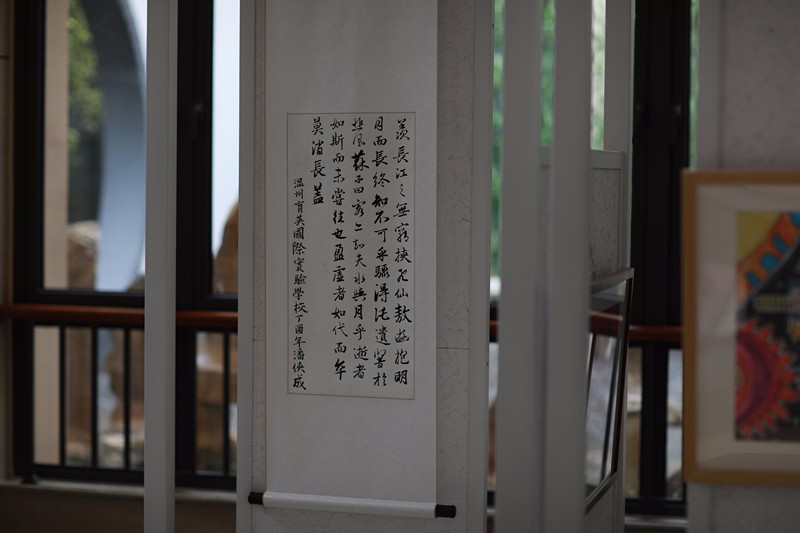 羡長江之無窮挾飛仙以遨遊抱明
月而長終知不可乎驟得託遺響於
悲風蘇子曰客亦知夫水與月乎逝者
如斯而未嘗往也盈虛者如代而卒
莫消長蓋
温州育英國際實驗學校丁酉年潘俠成